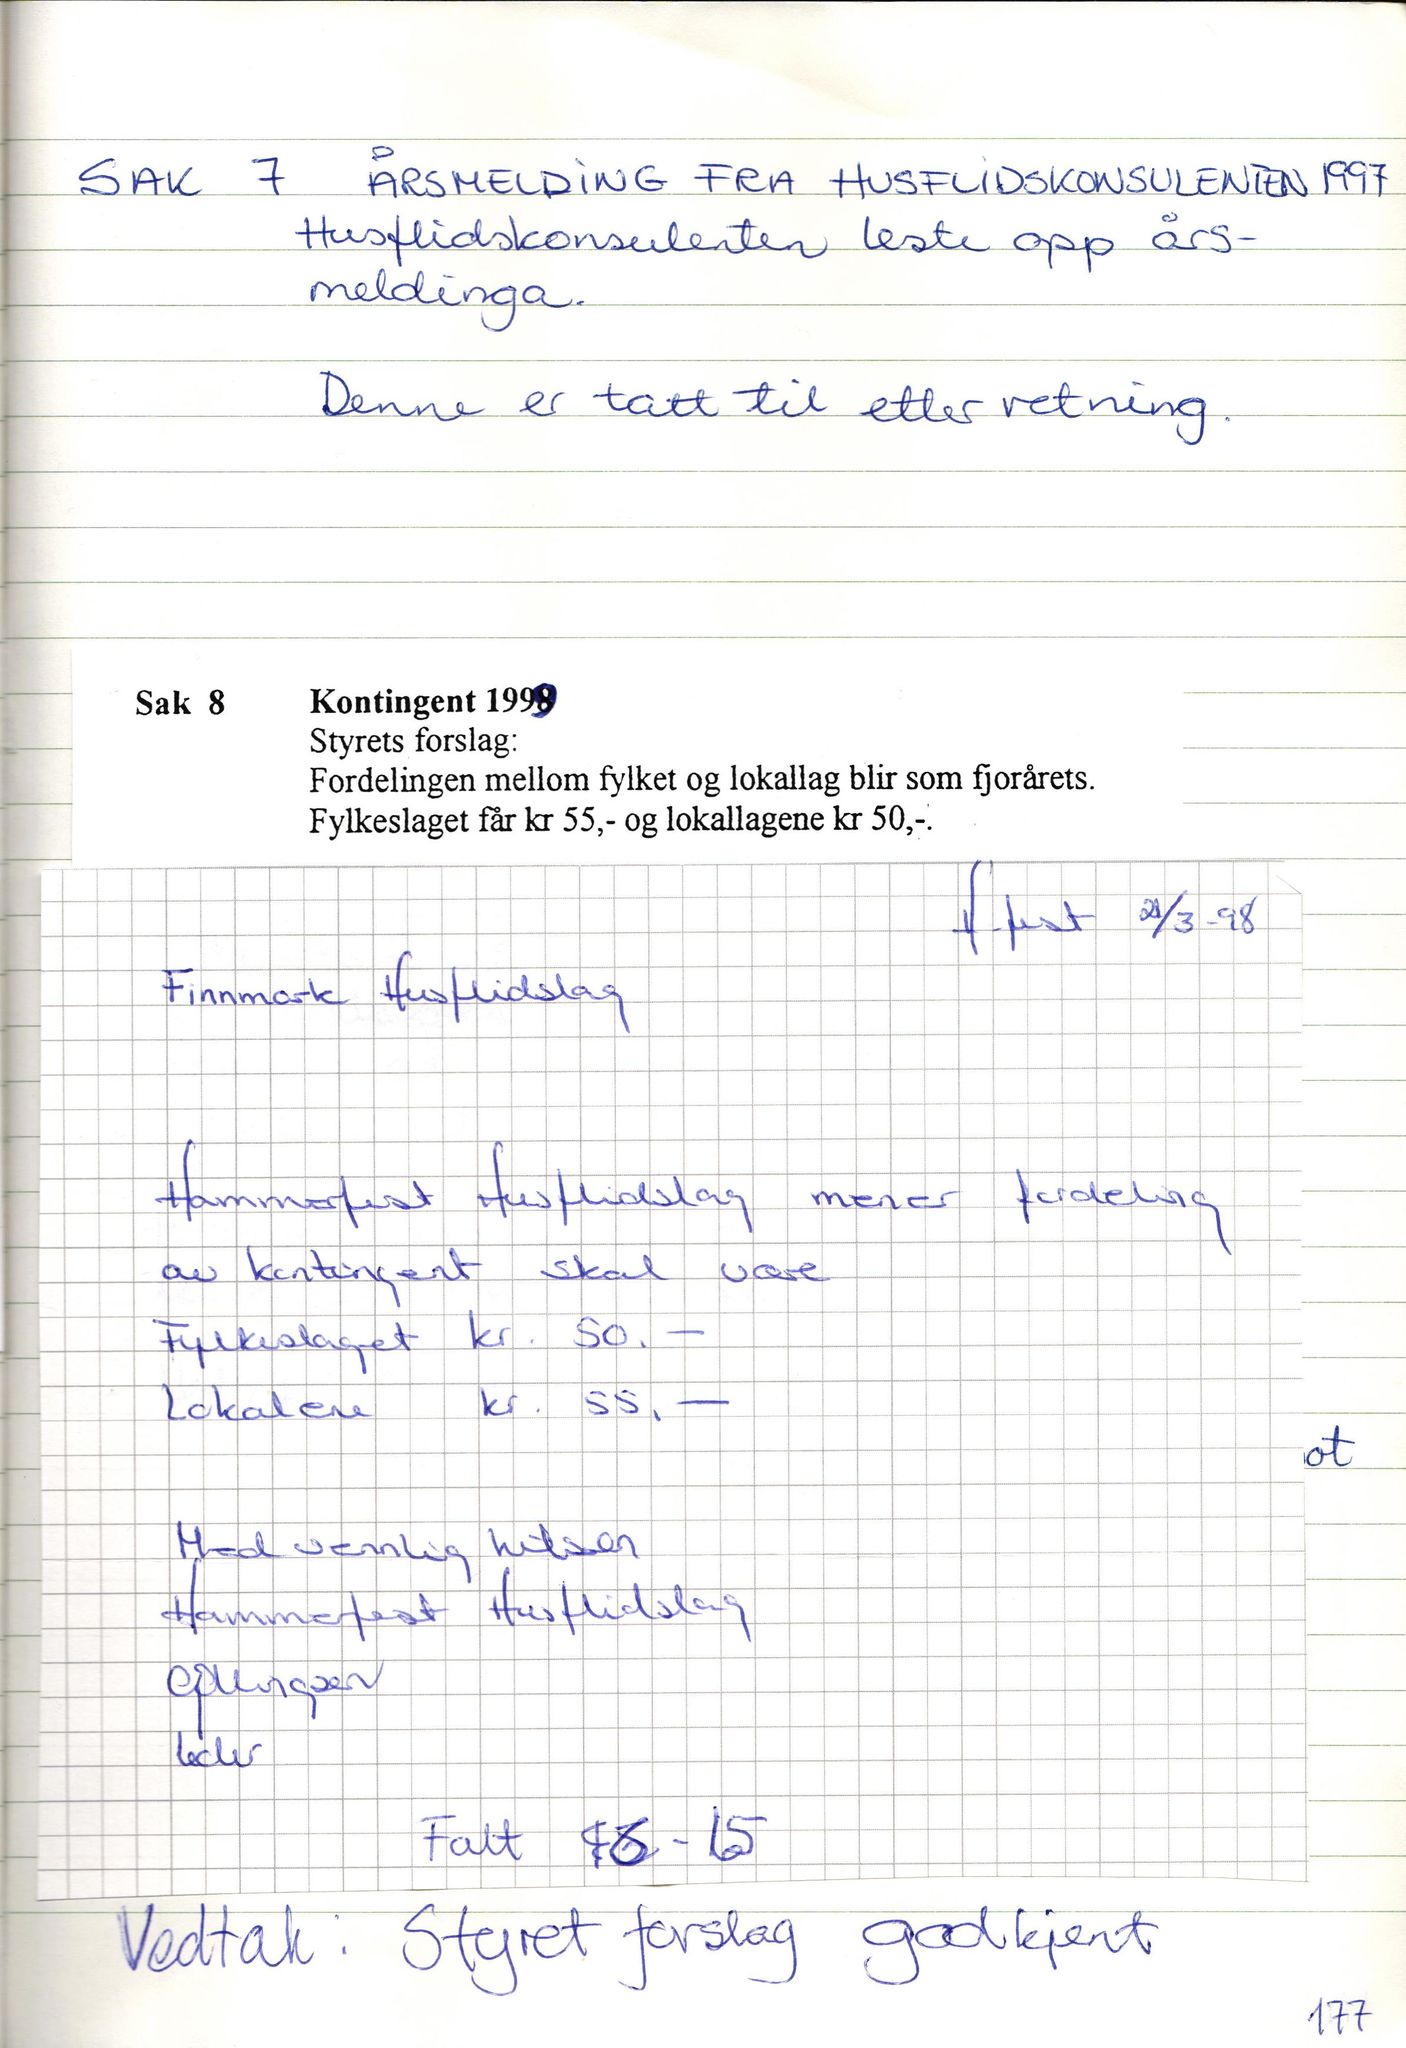 SAK 7 ÅRSMELDING FRA HUSFLIDSKONSULENTEN 1997
Husflidskonsulenten leste opp års-
meldinga.
Denne er tatt til etter retning.
Sak 8 Kontingent 1999
Styrets forslag:
Fordelingen mellom fylket og lokallag blir som fjorårets.
Fylkeslaget får kr 55,- og lokallagene kr 50,-.
H-fest 21/3-98
Finnmark Husflidslag
Hammerfest Husflidslag mener fordeling
av kontingent skal være
Fylkeslaget kr. 50.—
Lokalene kr. 55,—
ot
Med vennlig hilsen
Hammerfest Husflidslag
leder
Falt - 15
Vedtak: Styret forslag godkjent
177